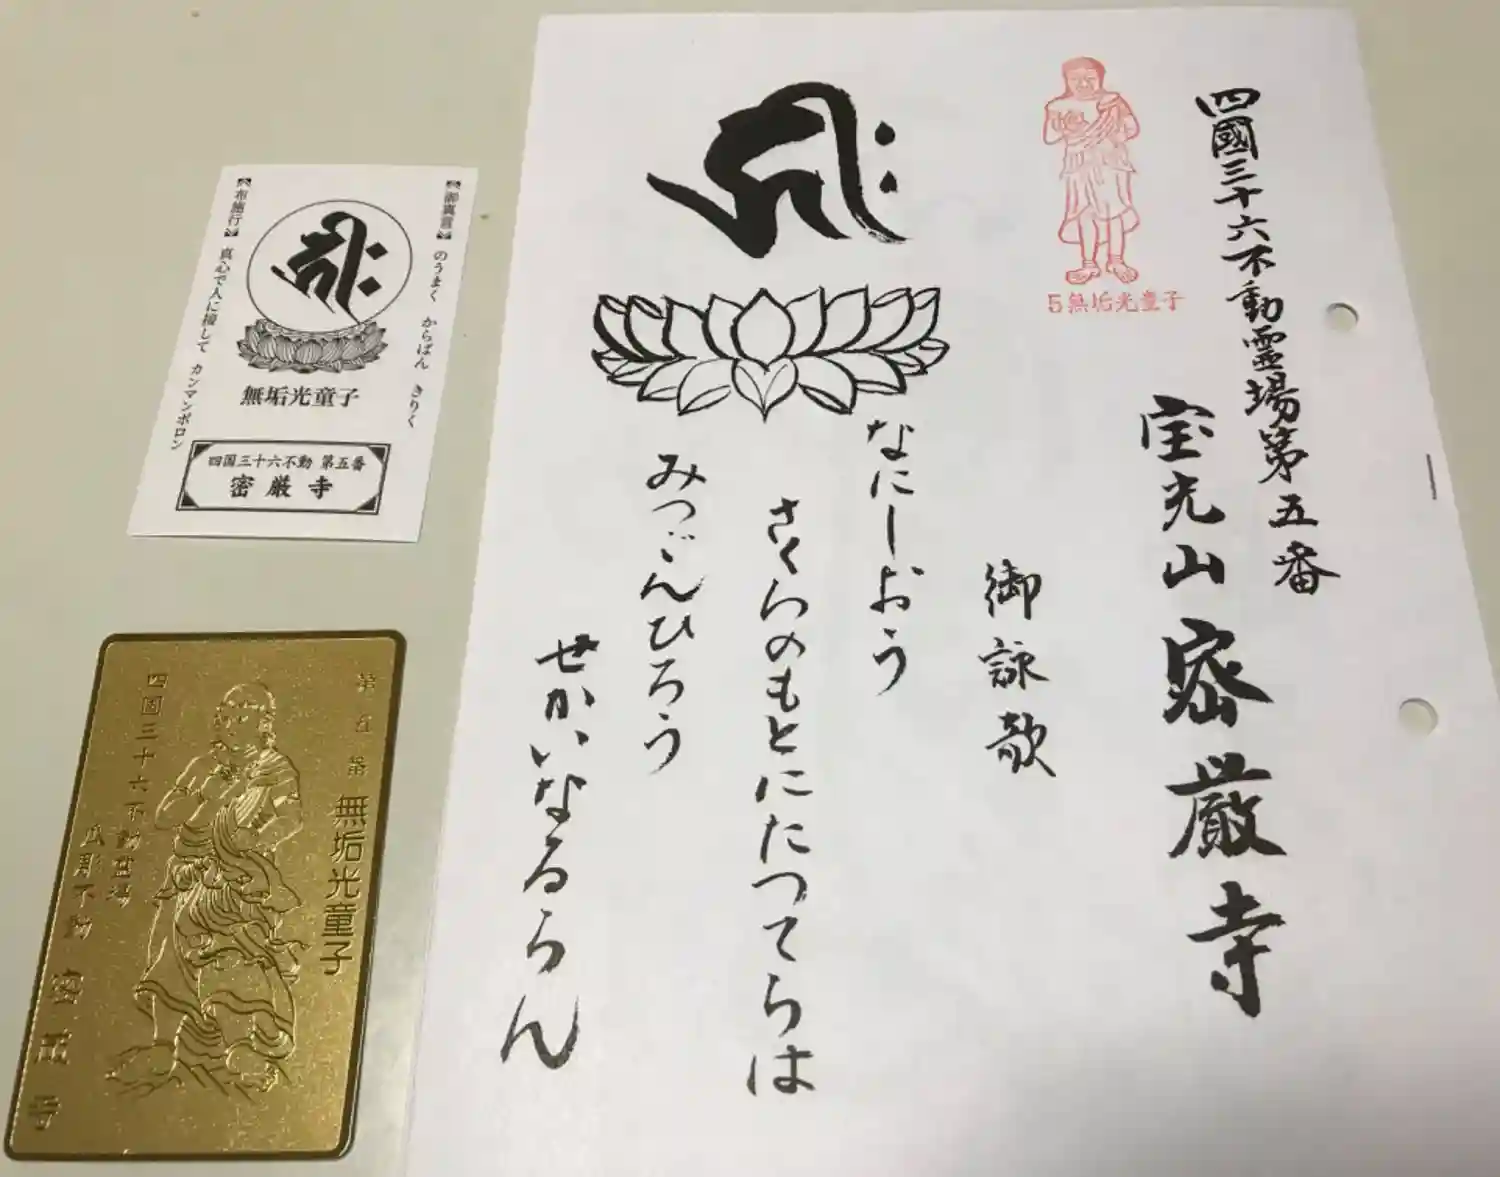 四國三十六不動霊場第五番
宝光山密厳寺
5無垢光童子
御詠歌
なにしおう
さくらのもとにたつてらは
みつごんひろう
せかいなるらん
御真言
のうまく からばん きりく
布施行
真心で人に接して カンマンボロン
無垢光童子
四国三十六不動 第五番
密厳寺
第五番 無垢光童子
四國三十六不動霊場